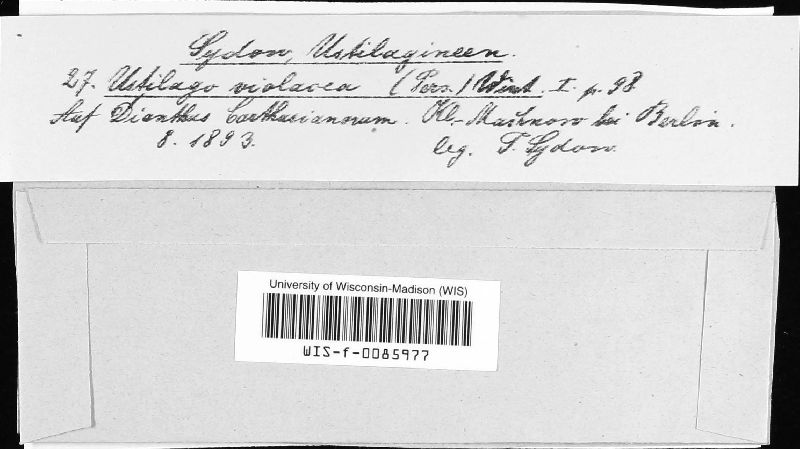 Sydow, Ustilagineen.
27. Ustilago violacea (Pers.) Wint. I. p. 98
Auf Dianthus Carthusianorum. Kl.-Machnow bei Berlin.
8. 1893. leg. P. Sydow.
University of Wisconsin-Madison (WIS)
WIS-f-0085977